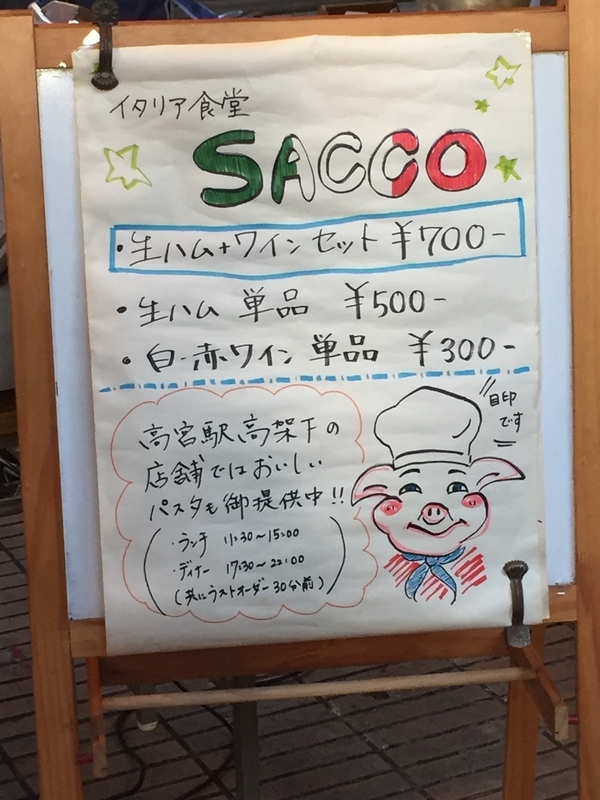 イタリア食堂
SACCO
・生ハム+ワインセット ¥700-
・生ハム 単品 ¥500-
・白・赤ワイン 単品 ¥300-
目印
です
高宮駅高架下の
店舗ではおいしい
パスタも御提供中!!
・ランチ 11:30~15:00
・ディナー 17:30~22:00
(共にラストオーダー30分前)